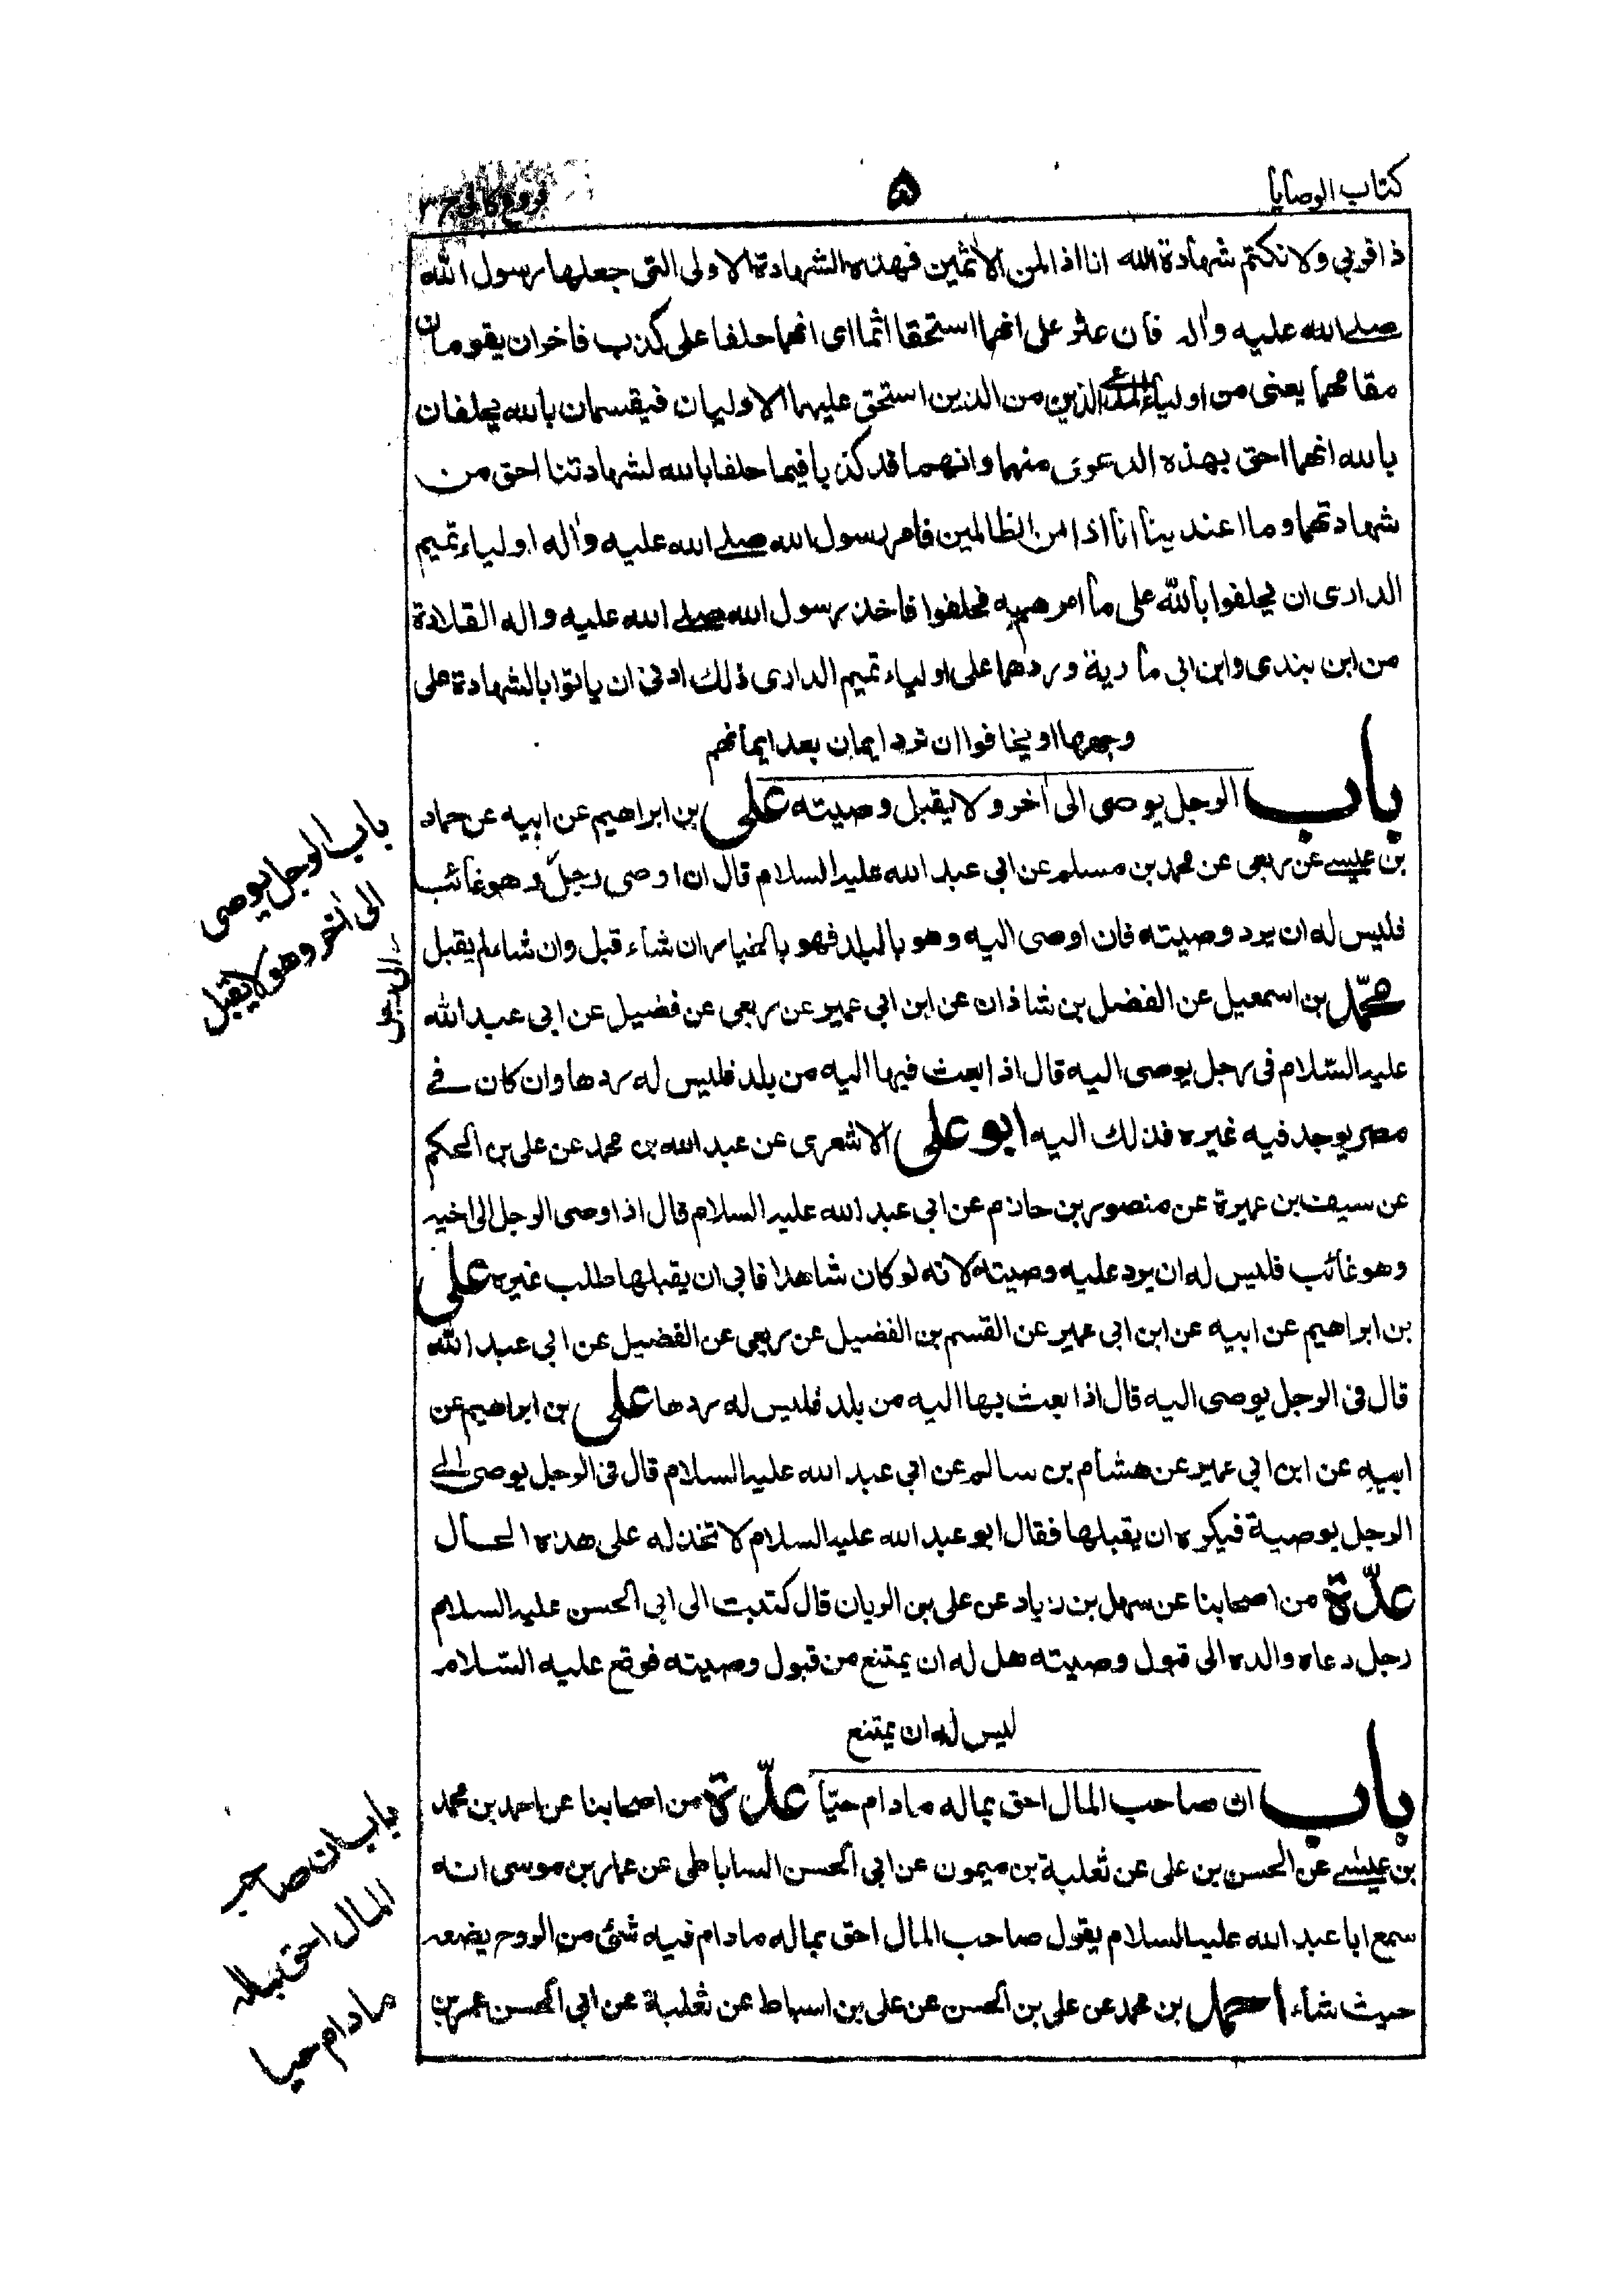 كتاب الوصايا
۵
فروع كافي ج ٣
ذا قربي ولا نكتم شهادة الله انا اذا لمن الاثمين فهذه الشهادة الاولى التى جعلها رسول الله
صلے الله عليه واله فان عثر على انهما استحقا اثما اى انهما حلفا على كذب فاخران يقومان
مقامهما يعنى من اولياء المدعى الذين من الذين استحق عليهما الاوليان فيقسمان بالله يحلفان
بالله انهما احق بهذه الدعوى منهما وانهما قد كذبا فيما حلفا بالله لشهادتنا احق من
شهادتهما وما اعتدينا انا اذا من الظالمين فامر رسول الله صلے الله عليه واله اولياء تميم
الدارى ان يحلفوا بالله على ما امرهم به فحلفوا فاخذ رسول الله صلے الله عليه واله القلادة
من ابن بندى وابن ابى مارية وردهما على اولياء تميم الدارى ذلك ادنى ان ياتوا بالشهادة على
وجهها او يخافوا ان ترد ايمان بعد ايمانهم
باب الرجل يوصى الى اٰخر ولا يقبل وصيته على بن ابراهيم عن ابيه عن حماد
بن عيسے عن ربعى عن محمد بن مسلم عن ابى عبد الله عليه السلام قال ان اوصى رجل وهو غائب
فليس له ان يرد وصيته فان اوصى اليه وهو بالبلد فهو بالخيار ان شاء قبل وان شاء لم يقبل
محمّد بن اسمعيل عن الفضل بن شاذان عن ابن ابى عمير عن ربعى عن فضيل عن ابى عبد الله
عليه السّلام فى رجل يوصى اليه قال اذا بعث فيها اليه من بلد فليس له ردها وان كان فے
مصر يوجد فيه غيره فذلك اليه ابو على الاشعرى عن عبد الله بن محمد عن على بن الحكم
عن سيف بن عميرة عن منصور بن حازم عن ابى عبد الله عليه السلام قال اذا اوصى الرجل الى اخيه
وهو غائب فليس له ان يرد عليه وصيته لانه لو كان شاهدا فابى ان يقبلها طلب غيره على
بن ابراهيم عن ابيه عن ابن ابى عمير عن القسم بن الفضيل عن ربعى عن الفضيل عن ابى عبد الله
قال فى الرجل يوصى اليه قال اذا بعث بها اليه من بلد فليس له ردها على بن ابراهيم عن
ابيه عن ابن ابى عمير عن هشام بن سالم عن ابى عبد الله عليه السلام قال فى الرجل يوصى الے
الرجل بوصية فيكره ان يقبلها فقال ابو عبد الله عليه السلام لا تخذله على هذه الحال
عدّة من اصحابنا عن سهل بن زياد عن على بن الريان قال كتبت الى ابى الحسن عليه السلام
رجل دعاه والده الى قبول وصيته هل له ان يمتنع من قبول وصيته فوقع عليه السّلام
ليس له ان يمتنع
باب ان صاحب المال احق بماله مادام حيّا عدّة من اصحابنا عن احمد بن محمد
بن عيسے عن الحسن بن على عن ثعلبة بن ميمون عن ابى الحسن الساباطى عن عمار بن موسى انه
سمع ابا عبد الله عليه السلام يقول صاحب المال احق بماله مادام فيه شئ من الروح يضعه
حيث شاء احمد بن محمد عن على بن الحسن عن على بن اسباط عن ثعلبة عن ابى الحسن عمر بن
باب الرجل يوصى
الى اٰخر وهو لا يقبل
الى رجل
باب ان صاحب
المال احق بماله
مادام حيا